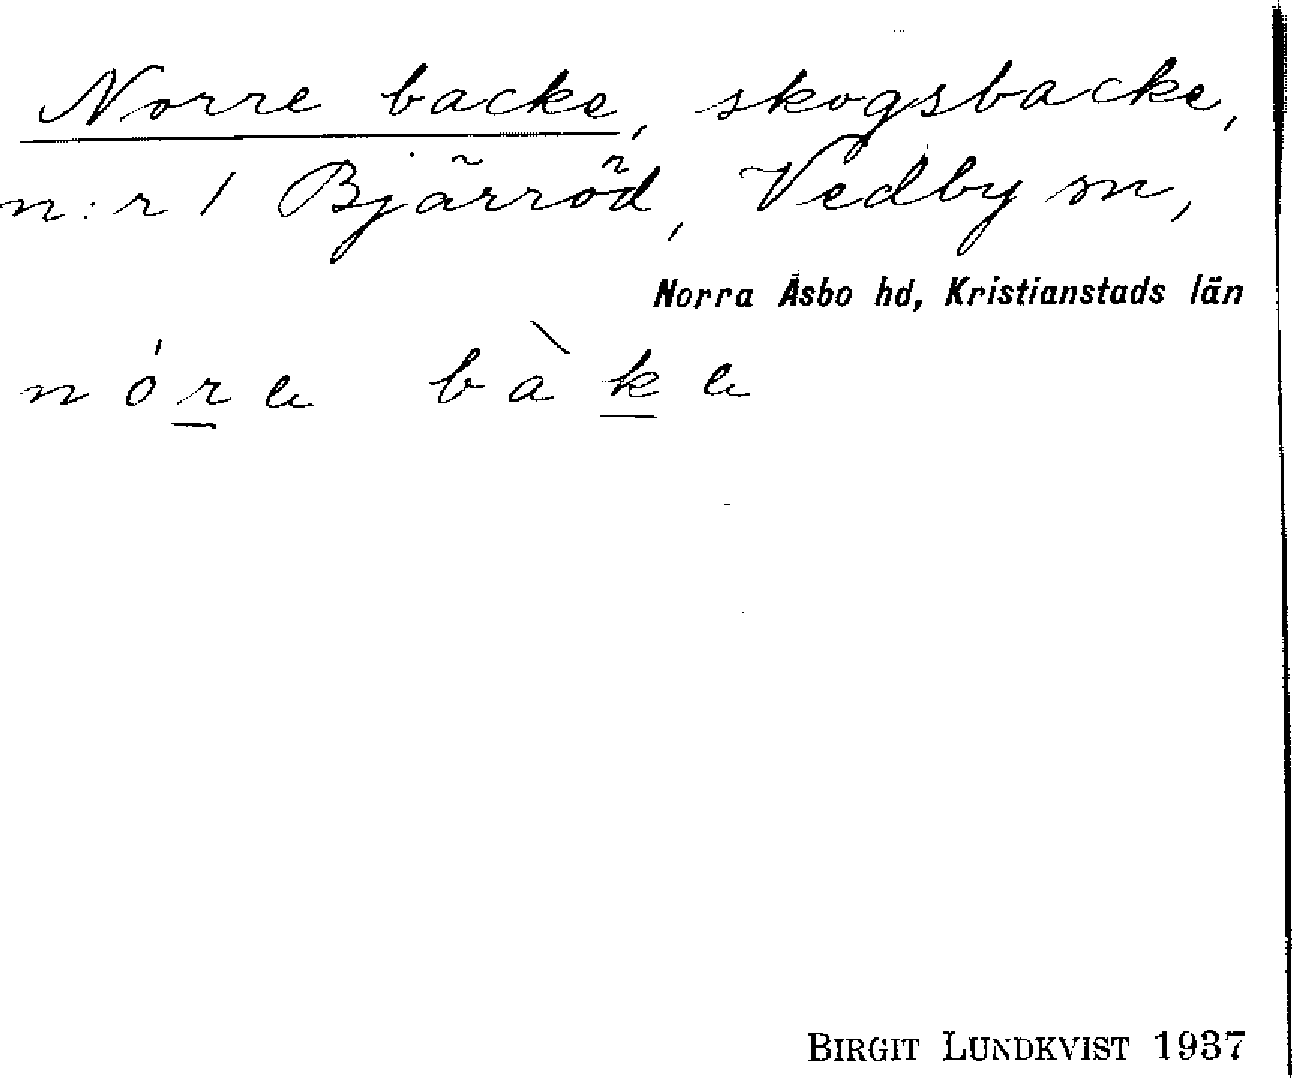 Norre backe, skogsbacke,
n:r 1 Bjärröd, Vedby sn,
Norra Åsbo hd, Kristianstads län
nórə bàkə
BIRGIT LUNDKVIST 1937